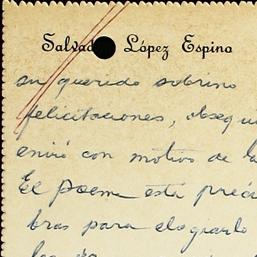 Salvad López Espino
su querido sobrino
felicitaciones, obsequi
envió con motivo de la
El poema está preci
bras para elogiarlo